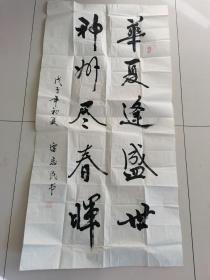 華夏逢盛世
神州尽春暉
戊子年初夏